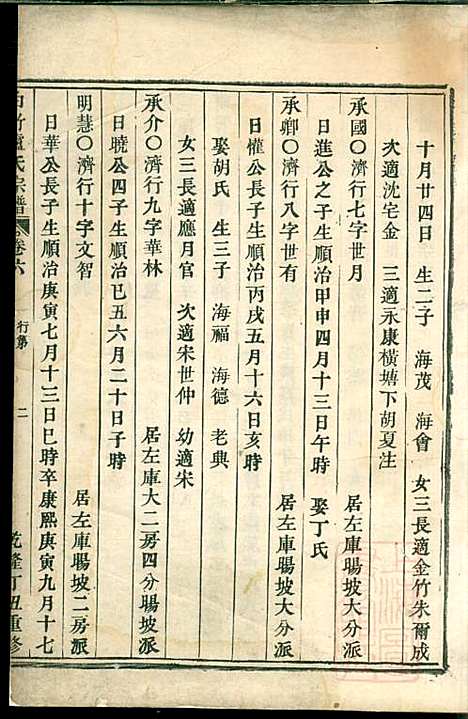 十月廿四日　生二子　海茂　海會　女三長適金竹朱爾成
次適沈宅金　三適永康橫塘下胡夏注
承國〇濟行七字世月　居左庫暘坡大分派
日進公之子生順治甲申四月十三日午時　娶丁氏
承鄉〇濟行八字世有　居左庫暘坡大分派
日慛公長子生順治丙戌五月十六日亥時
娶胡氏　生三子　海福　海德　老典
女三長適應月官　次適宋世仲　幼適宋
承介〇濟行九字華林　居左庫大二房四分暘坡派
日曉公四子生順治己五六月二十日子時
明慧〇濟行十字文智　居左庫暘坡二房派
日華公長子生順治庚寅七月十三日巳時卒康熙庚寅九月十七
盧氏宗譜　卷六　行第　二　乾隆丁丑重修